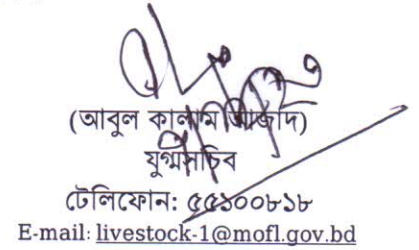 (আবুল কালাম আজাদ)
যুগ্মসচিব
টেলিফোন: ৫৫১০০৮১৮
E-mail: livestock-1@mofl.gov.bd